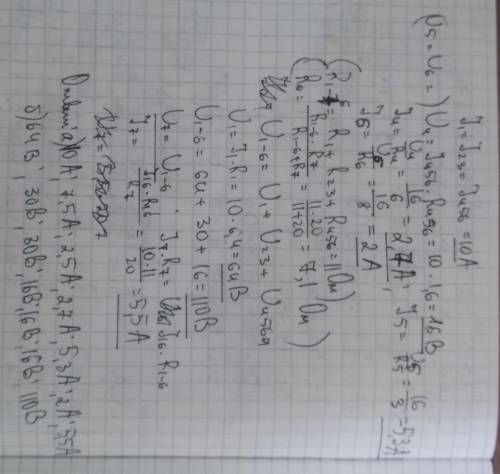 J₁=J₂₃=J₄₅₆=10A
(U₅=U₆=) U₄=J₄₅₆·R₄₅₆=10·1,6=16В
J₄=U₄/R₄=16/6=2,7A; J₅=U₅/R₅=16/3=5,3A
J₆=U₆/R₆=16/8=2A
(R₁₋₆=R₁+R₂₃+R₄₅₆=11Ом)
(R₀=R₁₋₆·R₇/R₁₋₆+R₇=11·20/11+20=7,1 Ом)
U₁₋₆=U₁+U₂₃+U₄₅₆
U₁=J₁·R₁=10·6,4=64В
U₁₋₆=64+30+16=110В
U₇=U₁₋₆; J₇·R₇=J₁₆·R₁₋₆
J₇=J₁₆·R₁₆/R₇=10·11/20=5,5A
U₇=
а)10A; 7,5A; 2,5A; 2,7A; 5,3A; 2A; 5,5A
б)64В; 30В; 30В; 16В; 16В; 16В; 110В